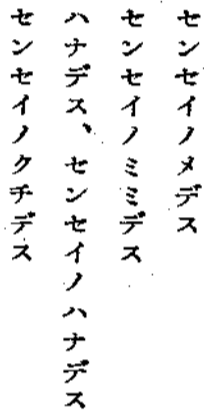 センセイノメデス
センセイノミミデス
ハナデス、センセイノハナデス
センセイノクチデス